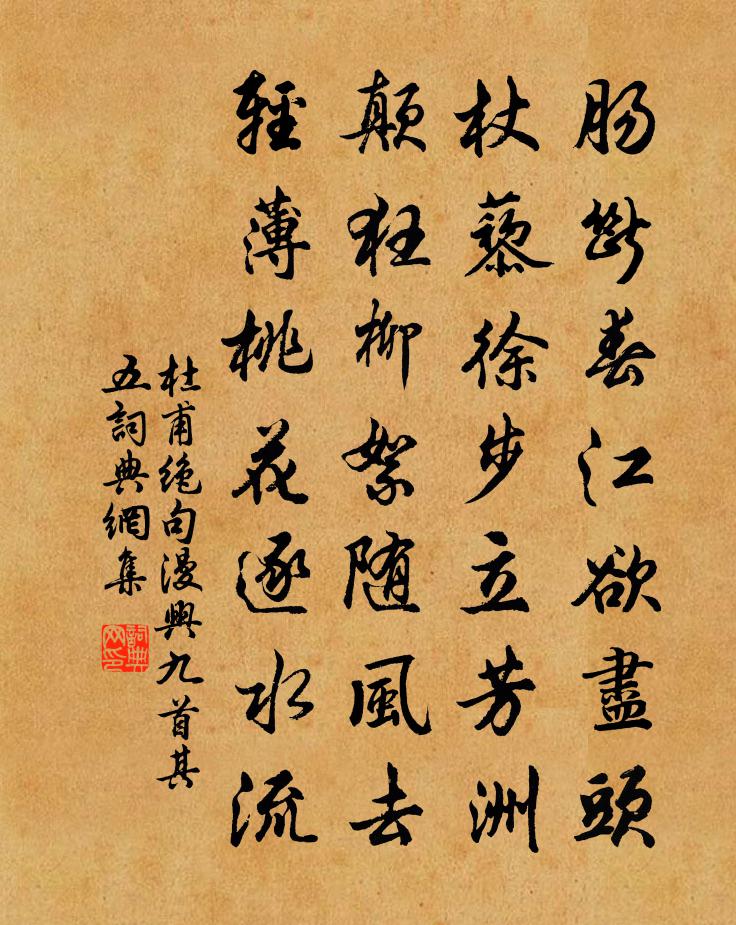 肠斷春江欲盡頭
杖藜徐步立芳洲
顛狂柳絮随風去
輕薄桃花逐水流
杜甫绝句漫興九首其
五詞典網集
詞典
网印